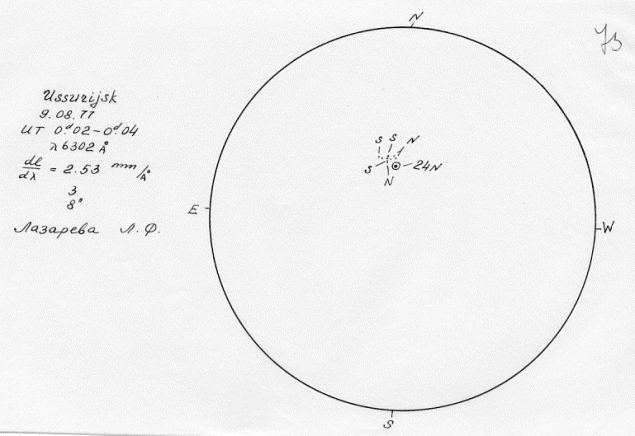 Ussurijsk
9.08.77
UT 0ᵈ02-0ᵈ.04
λ6302 Å
dℓ/dλ = 2.53 mm/Å
3
8"
Лазарева Л. Ф.
N
S S N
S
24N
N
E
W
S